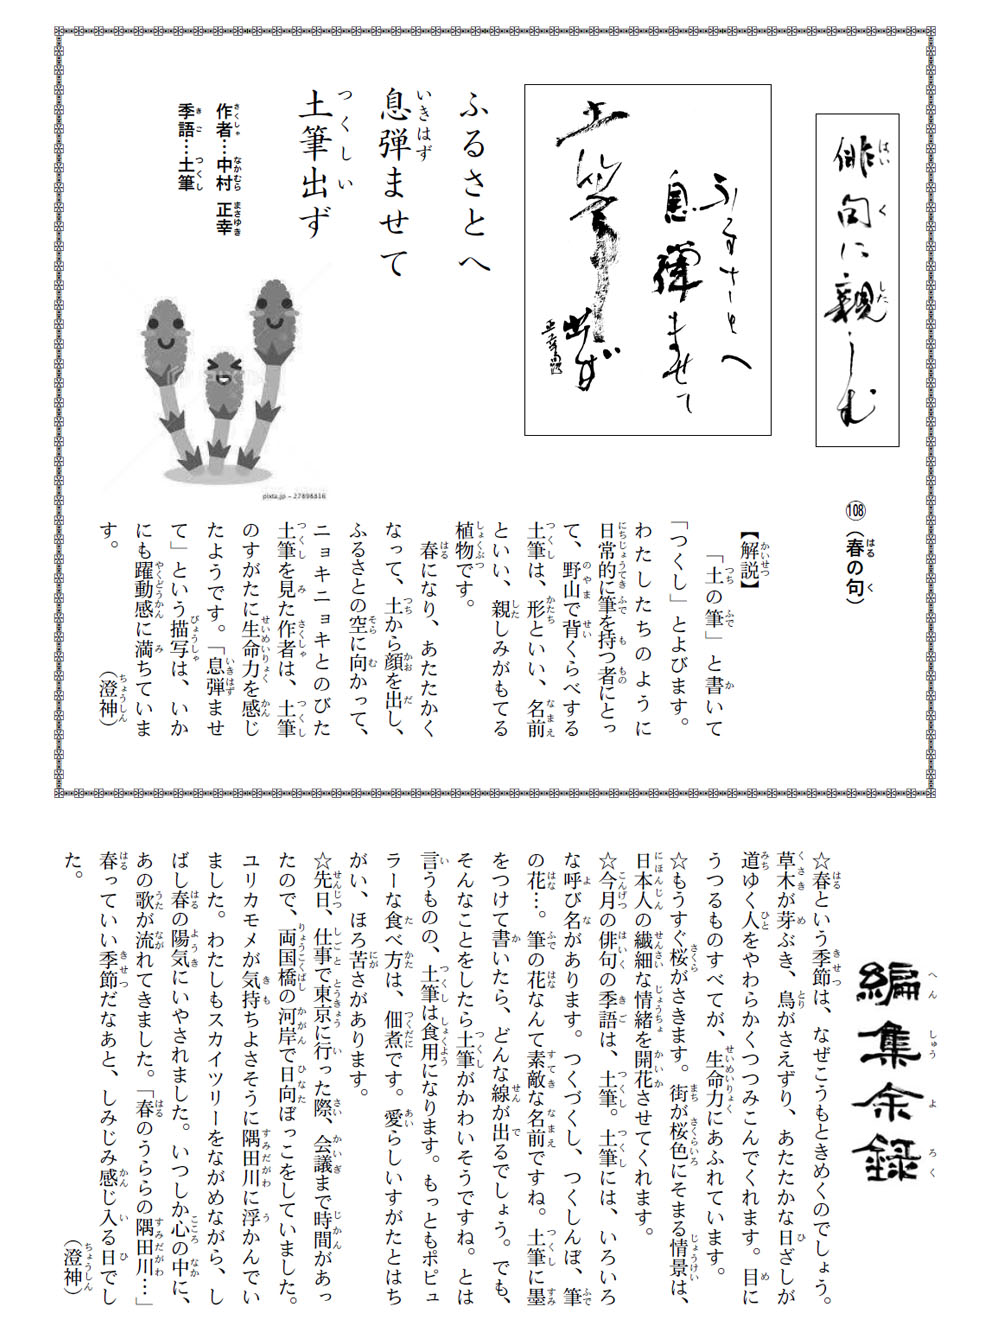 俳句に親しむ
ふるさとへ
息弾ませて
土筆出ず
正幸
ふるさとへ
息弾ませて
土筆出ず
作者…中村 正幸
季語…土筆
pixta.jp - 27898816
108（春の句）
【解説】
「土の筆」と書いて
「つくし」とよびます。
わたしたちのように
日常的に筆を持つ者にとっ
て、野山で背くらべする
土筆は、形といい、名前
といい、親しみがもてる
植物です。
春になり、あたたかく
なって、土から顔を出し、
ふるさとの空に向かって、
ニョキニョキとのびた
土筆を見た作者は、土筆
のすがたに生命力を感じ
たようです。「息弾ませ
て」という描写は、いか
にも躍動感に満ちていま
す。
（澄神）
編集余録
☆春という季節は、なぜこうもときめくのでしょう。
草木が芽ぶき、鳥がさえずり、あたたかな日ざしが
道ゆく人をやわらかくつつみこんでくれます。目に
うつるものすべてが、生命力にあふれています。
☆もうすぐ桜がさきます。街が桜色にそまる情景は、
日本人の繊細な情緒を開花させてくれます。
☆今月の俳句の季語は、土筆。土筆には、いろいろ
な呼び名があります。つくづくし、つくしんぼ、筆
の花…。筆の花なんて素敵な名前ですね。土筆に墨
をつけて書いたら、どんな線が出るでしょう。でも、
そんなことをしたら土筆がかわいそうですね。とは
言うものの、土筆は食用になります。もっともポピュ
ラーな食べ方は、佃煮です。愛らしいすがたとはち
がい、ほろ苦さがあります。
☆先日、仕事で東京に行った際、会議まで時間があっ
たので、両国橋の河岸で日向ぼっこをしていました。
ユリカモメが気持ちよさそうに隅田川に浮かんでい
ました。わたしもスカイツリーをながめながら、し
ばし春の陽気にいやされました。いつしか心の中に、
あの歌が流れてきました。「春のうららの隅田川…」
春っていい季節だなあと、しみじみ感じ入る日でし
た。
（澄神）